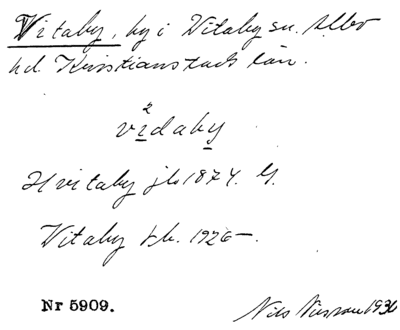 Vitaby, by i Vitaby sn. Albo
hd. Kristianstads län.
2
vidaby
Hvitaby jb 1874. G.
Vitaby tk. 1926–.
Nr 5909. Nils 1930